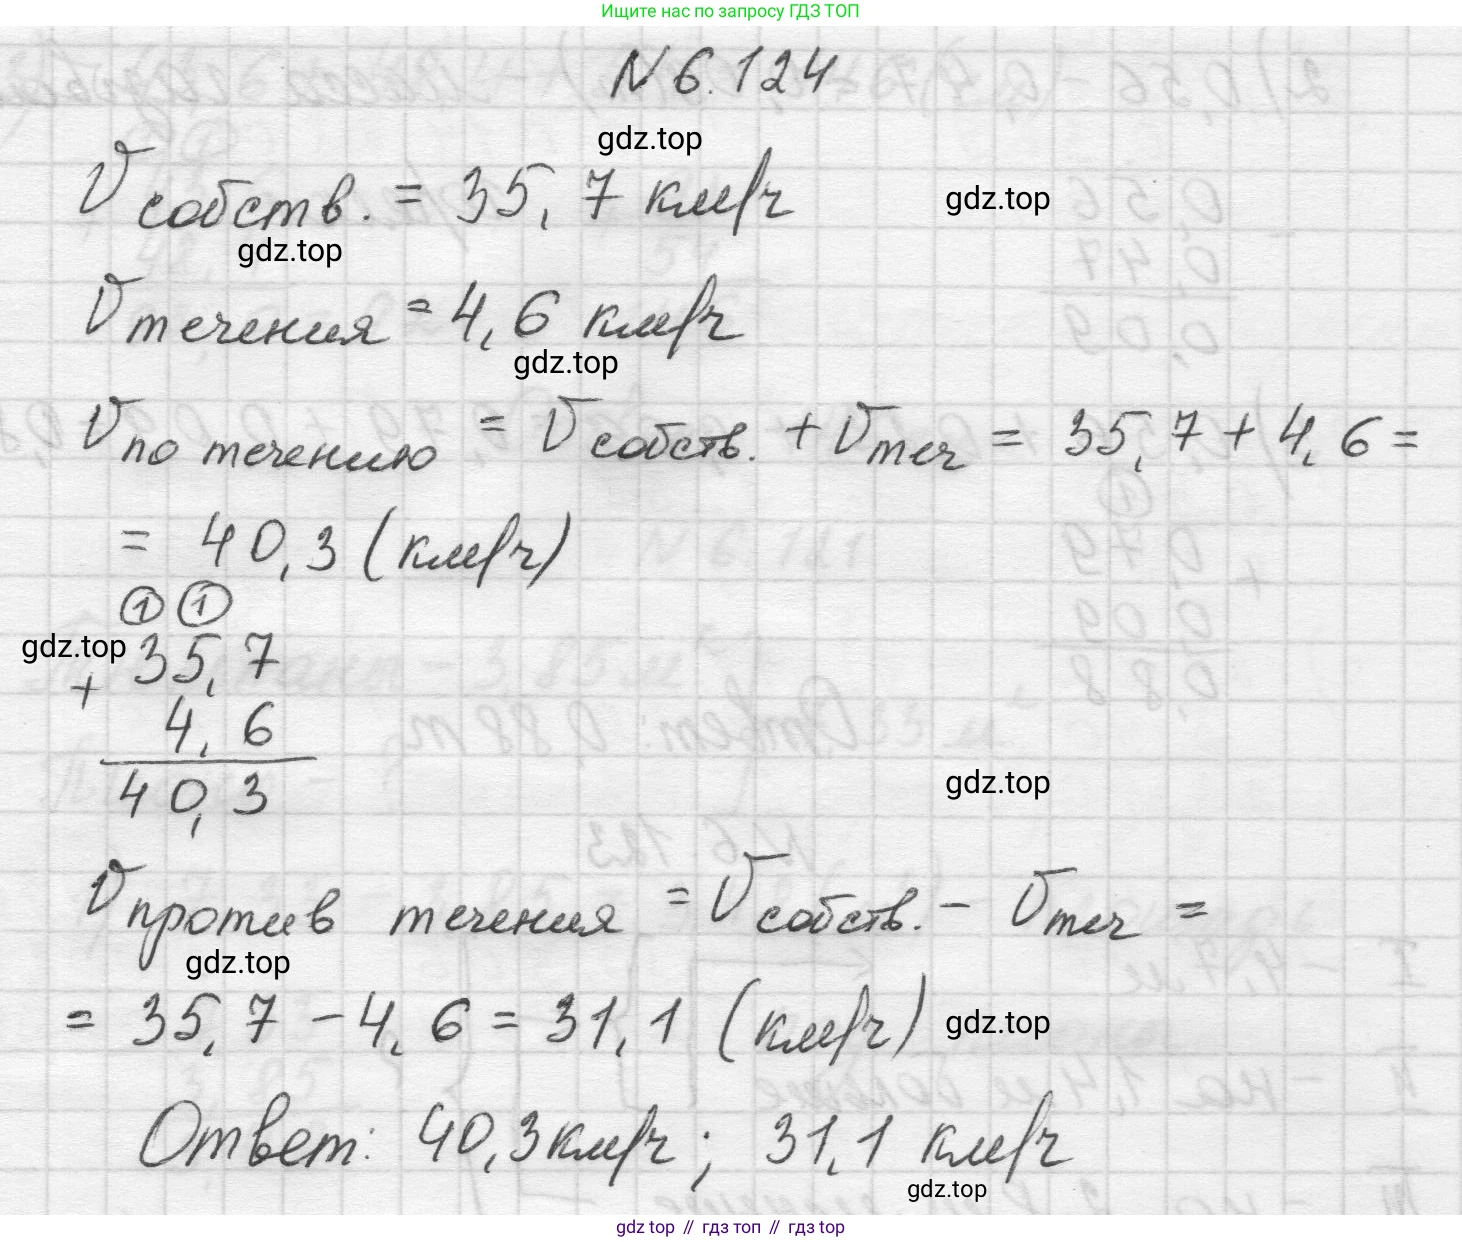 Ищите нас по запросу ГДЗ ТОП
N 6.124
gdz.top
V собств. = 35,7 км/ч
gdz.top
gdz.top
V течения = 4,6 км/ч
gdz.top
V по течению = V собств. + V теч = 35,7 + 4,6 =
= 40,3 (км/ч)
1 1
gdz.top
35,7
+
4,6
40,3
gdz.top
V против течения = V собств. - V теч =
gdz.top
= 35,7 - 4,6 = 31,1 (км/ч)
gdz.top
Ответ: 40,3 км/ч; 31,1 км/ч
gdz.top
gdz top // гдз топ // gdz top